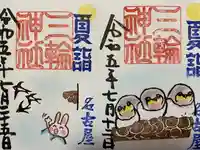 夏詣
三輪
神社
名古屋
令和五年七月
夏詣
三輪
神社
名古屋
令和五年七月